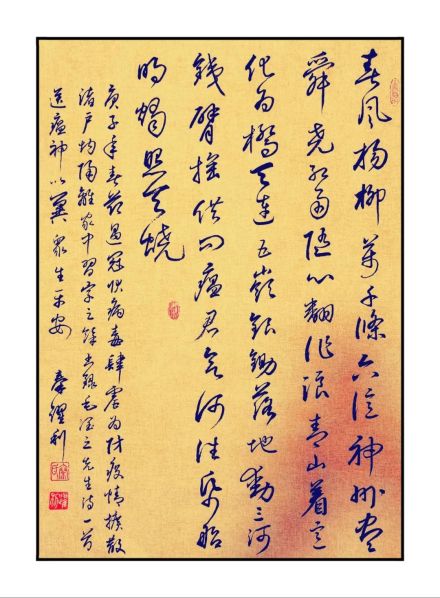 春风杨柳萬千條六億神州尽
舜尧红雨随心翻作浪青山着意
化为橋天连五嶺银锄落地動三河
铁臂摇借问瘟君欲何往纸船
明烛照天烧
庚子年春节遇冠状病毒肆虐为防疫情擴散
诸户均隔離家中習字之餘书録毛润之先生诗一首
送瘟神以冀眾生平安